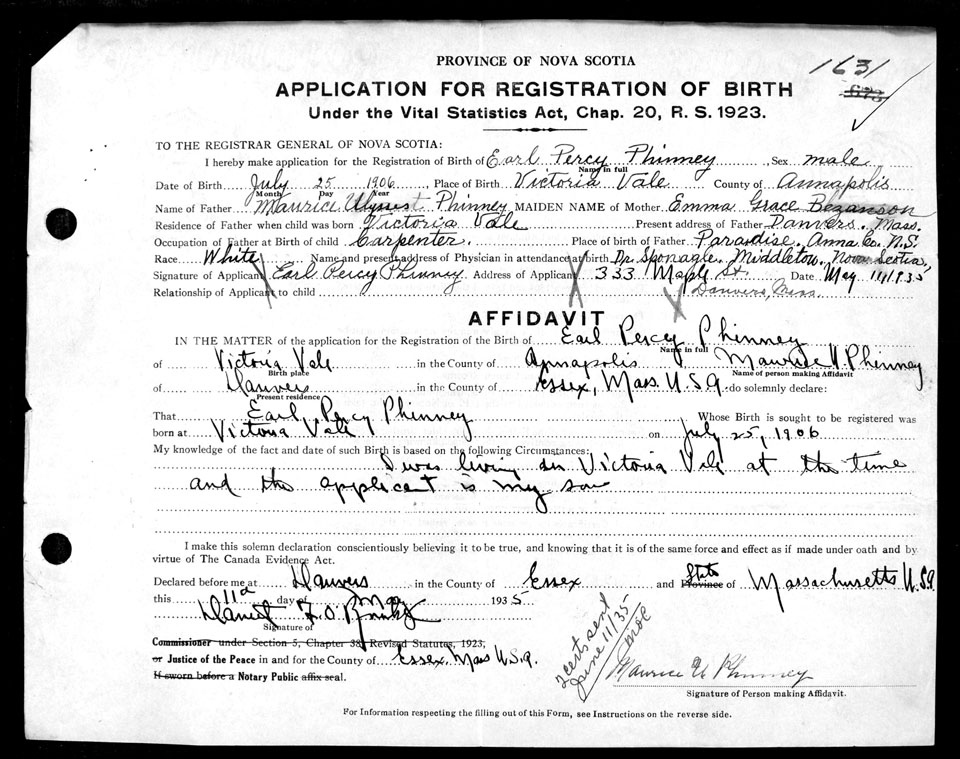 PROVINCE OF NOVA SCOTIA
1631
APPLICATION FOR REGISTRATION OF BIRTH
673
Under the Vital Statistics Act, Chap. 20, R. S. 1923.
TO THE REGISTRAR GENERAL OF NOVA SCOTIA:
I hereby make application for the Registration of Birth of Earl Percy Phinney, Sex male
Name in full
Date of Birth July 25 1906, Place of Birth Victoria Vale County of Annapolis
Month Day Year
Name of Father Maurice Ulysses Phinney MAIDEN NAME of Mother Emma Grace Bezanson
Residence of Father when child was born Victoria Vale Present address of Father Danvers, Mass.
Occupation of Father at Birth of child Carpenter. Place of birth of Father Paradise, Anna. Co. N.S.
Race White Name and present address of Physician in attendance at birth Dr. Sponagle, Middleton, Nova Scotia,
Signature of Applicant Earl Percy Phinney Address of Applicant 333 Maple St. Date May 11 1935
Relationship of Applicant to child Danvers, Mass.
AFFIDAVIT
IN THE MATTER of the application for the Registration of the Birth of Earl Percy Phinney
Name in full
of Victoria Vale in the County of Annapolis Maurice U Phinney
Birth place Name of person making Affidavit
of Danvers in the County of Essex, Mass. U.S.A. do solemnly declare:
Present residence
That Earl Percy Phinney Whose Birth is sought to be registered was
born at Victoria Vale on July 25, 1906
My knowledge of the fact and date of such Birth is based on the following Circumstances:
I was living in Victoria Vale at the time
and the applicant is my son
I make this solemn declaration conscientiously believing it to be true, and knowing that it is of the same force and effect as if made under oath and by
virtue of The Canada Evidence Act.
Declared before me at Danvers in the County of Essex and Province State of Massachusetts U.S.A
this 11th day of May 1935
Signature of
Commissioner under Section 5, Chapter 38, Revised Statutes, 1923,
or Justice of the Peace in and for the County of Essex, Mass U.S.A.
If sworn before a Notary Public affix seal.
2 certs sent
June 11/35
Maurice U Phinney
Signature of Person making Affidavit.
For Information respecting the filling out of this Form, see Instructions on the reverse side.